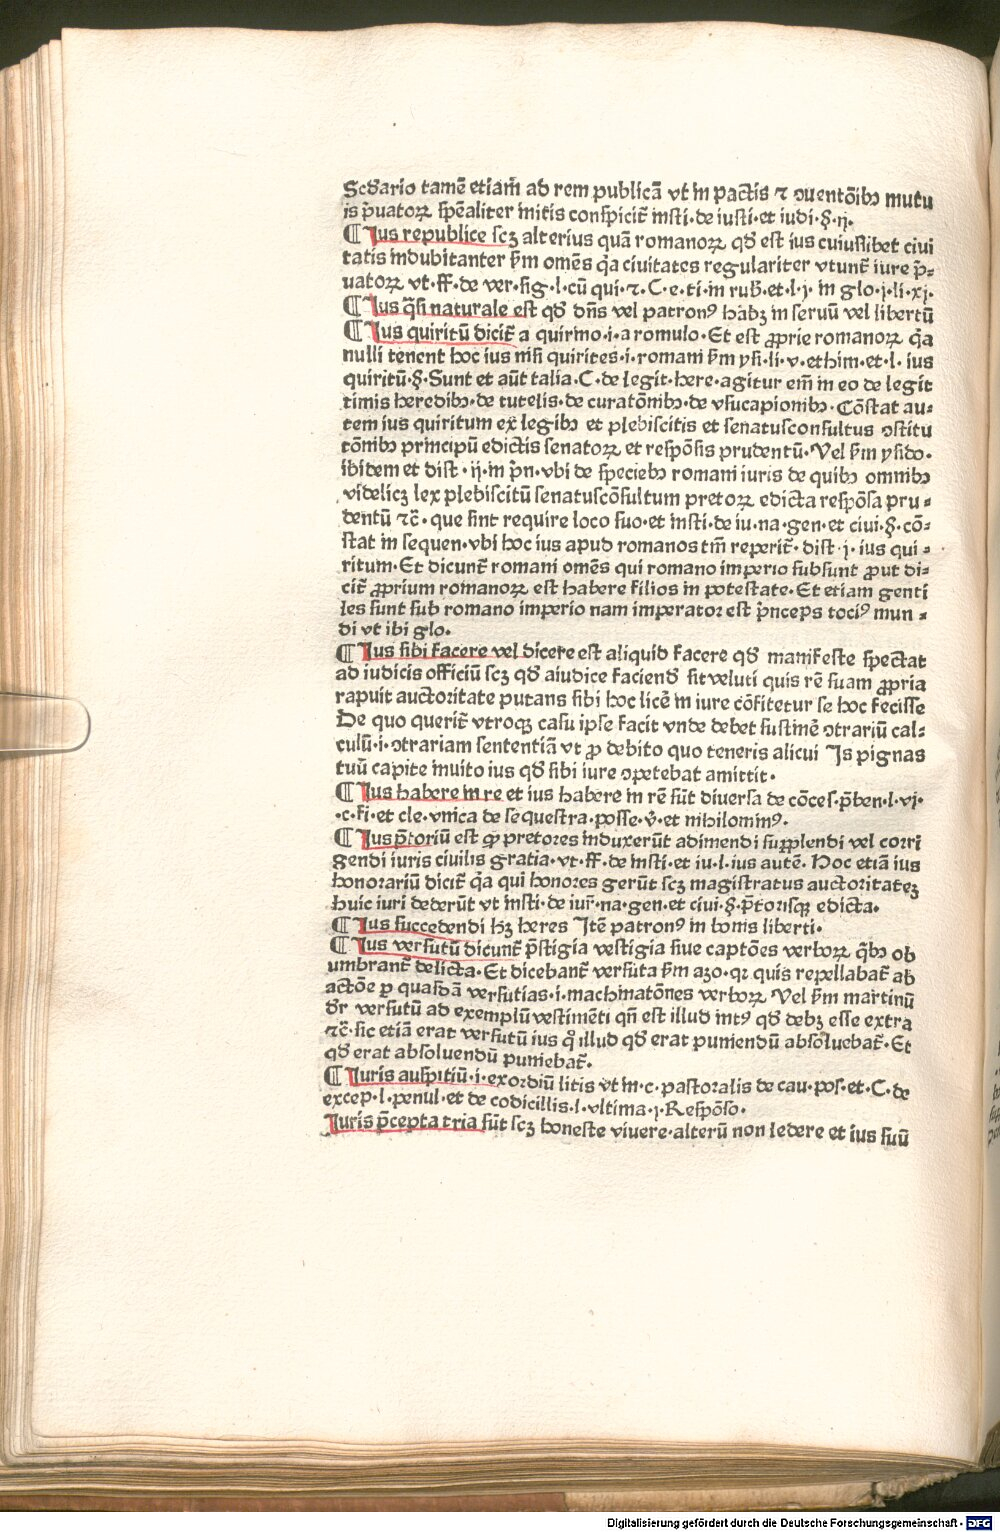 Scđario tamē etiam̄ ad rem publicā vt in pactis ⁊ ɔuentōibꝫ mutu
is p̄uatoꝝ sp̄ealiter initis conspicit᷑ insti·de iusti·et iudi·§·ij·
¶ Ius republice scꝫ alterius quā romanoꝝ qđ est ius cuiuslibet ciui
tatis indubitanter s̄m omēs q̄a ciuitates regulariter vtunt᷑ iure p̄⸗
uatoꝝ vt·ff·de ver·sig·l·cū qui·⁊·C·e·ti·in rub̄·et·l·j·in glo·j·li·xj·
¶ Ius q̄si naturale est qđ dn̄s vel patronꝰ habꝫ in seruū vel libertū
¶ Ius quiritū dicit᷑ a quirino·i·a romulo·Et est ꝓprie romanoꝝ q̄a
nulli tenent hoc ius nisi quirites·i·romani s̄m ysi·li·v·ethim·et·l·ius
quiritū·§·Sunt et aūt talia·C·de legit·here·agitur em̄ in eo de legit
timis heredibꝫ·de tutelis·de curatōnibꝫ·de vsucapionibꝫ·Cōstat au⸗
tem ius quiritum ex legibꝫ et plebiscitis et senatusconsultus ɔstitu
tōnibꝫ principū edictis senatoꝝ et respōsis prudentū·Vel s̄m ysido·
ibidem et dist·ij·in p̄n·vbi de speciebꝫ romani iuris de quibꝫ omnibꝫ
videlicꝫ lex plebiscitū senatuscōsultum pretoꝝ edicta respōsa pru⸗
dentū ⁊c̄·que sint require loco suo·et insti·de iu·na·gen·et ciui·§·cō⸗
stat in sequen·vbi hoc ius apud romanos tm̄ reperit᷑·dist·j·ius qui⸗
ritum·Et dicunt᷑ romani omēs qui romano imperio subsunt ꝓut di⸗
cit᷑ ꝓprium romanoꝝ est habere filios in potestate·Et etiam genti
les sunt sub romano imperio nam imperator est p̄nceps tociꝰ mun⸗
di vt ibi glo·
¶ Ius sibi facere vel dicere est aliquid facere qđ manifeste spectat
ad iudicis officiū scꝫ qđ aiudice faciend̄ sit veluti quis rē suam ꝓpria
rapuit auctoritate putans sibi hoc licē in iure cōfitetur se hoc fecisse
De quo querit᷑ vtroqꝫ casu ipse facit vnde debet sustinē ɔtrariū cal⸗
culū·i·ɔtrariam sententiā vt ꝓ debito quo teneris alicui Is pignas
tuū capite inuito ius qđ sibi iure ɔpetebat amittit·
¶ Ius habere in re et ius habere in rē sūt diuersa de cōces·p̄ben·l·vj·
·c·fi·et cle·vnica de sequestra·posse·v̄·et nihilominꝰ·
¶ Ius p̄toriū est qđ pretores induxerūt adimendi supplendi vel corri
gendi iuris ciuilis gratia·vt·ff·de insti·et iu·l·ius autē·Hoc etiā ius
honorariū dicit᷑ q̄a qui honores gerūt scꝫ magistratus auctoritateꝫ
huic iuri dederūt vt insti·de iur̄·na·gen·et ciui·§·p̄torisqꝫ edicta·
¶ Ius succedendi hꝫ heres Itē patronꝰ in bonis liberti·
¶ Ius versutū dicunt᷑ p̄stigia vestigia siue captōes verboꝝ q̄bꝫ ob
umbrant᷑ delicta·Et dicebant᷑ versuta s̄m azo·qꝛ quis repellabat᷑ ab
actōe ꝑ quasdā versutias·i·machinatōnes verboꝝ Vel s̄m martinū
dr̄ versutū ad exemplū vestimēti qn̄ est illud intꝰ qđ debꝫ esse extra
⁊c̄·sic etiā erat versutū ius q̊ illud qđ erat puniendū absoluebat᷑·Et
qđ erat absoluendū puniebat᷑·
¶ Iuris auspitiū·i·exordiū litis vt in·c·pastoralis de cau·pos·et·C·de
excep·l·penul·et de codicillis·l·vltima·j·Respōso·
Iuris p̄cepta tria sūt scꝫ honeste viuere·alterū non ledere et ius suū
Digitalisierung gefördert durch die Deutsche Forschungsgemeinschaft - DFG